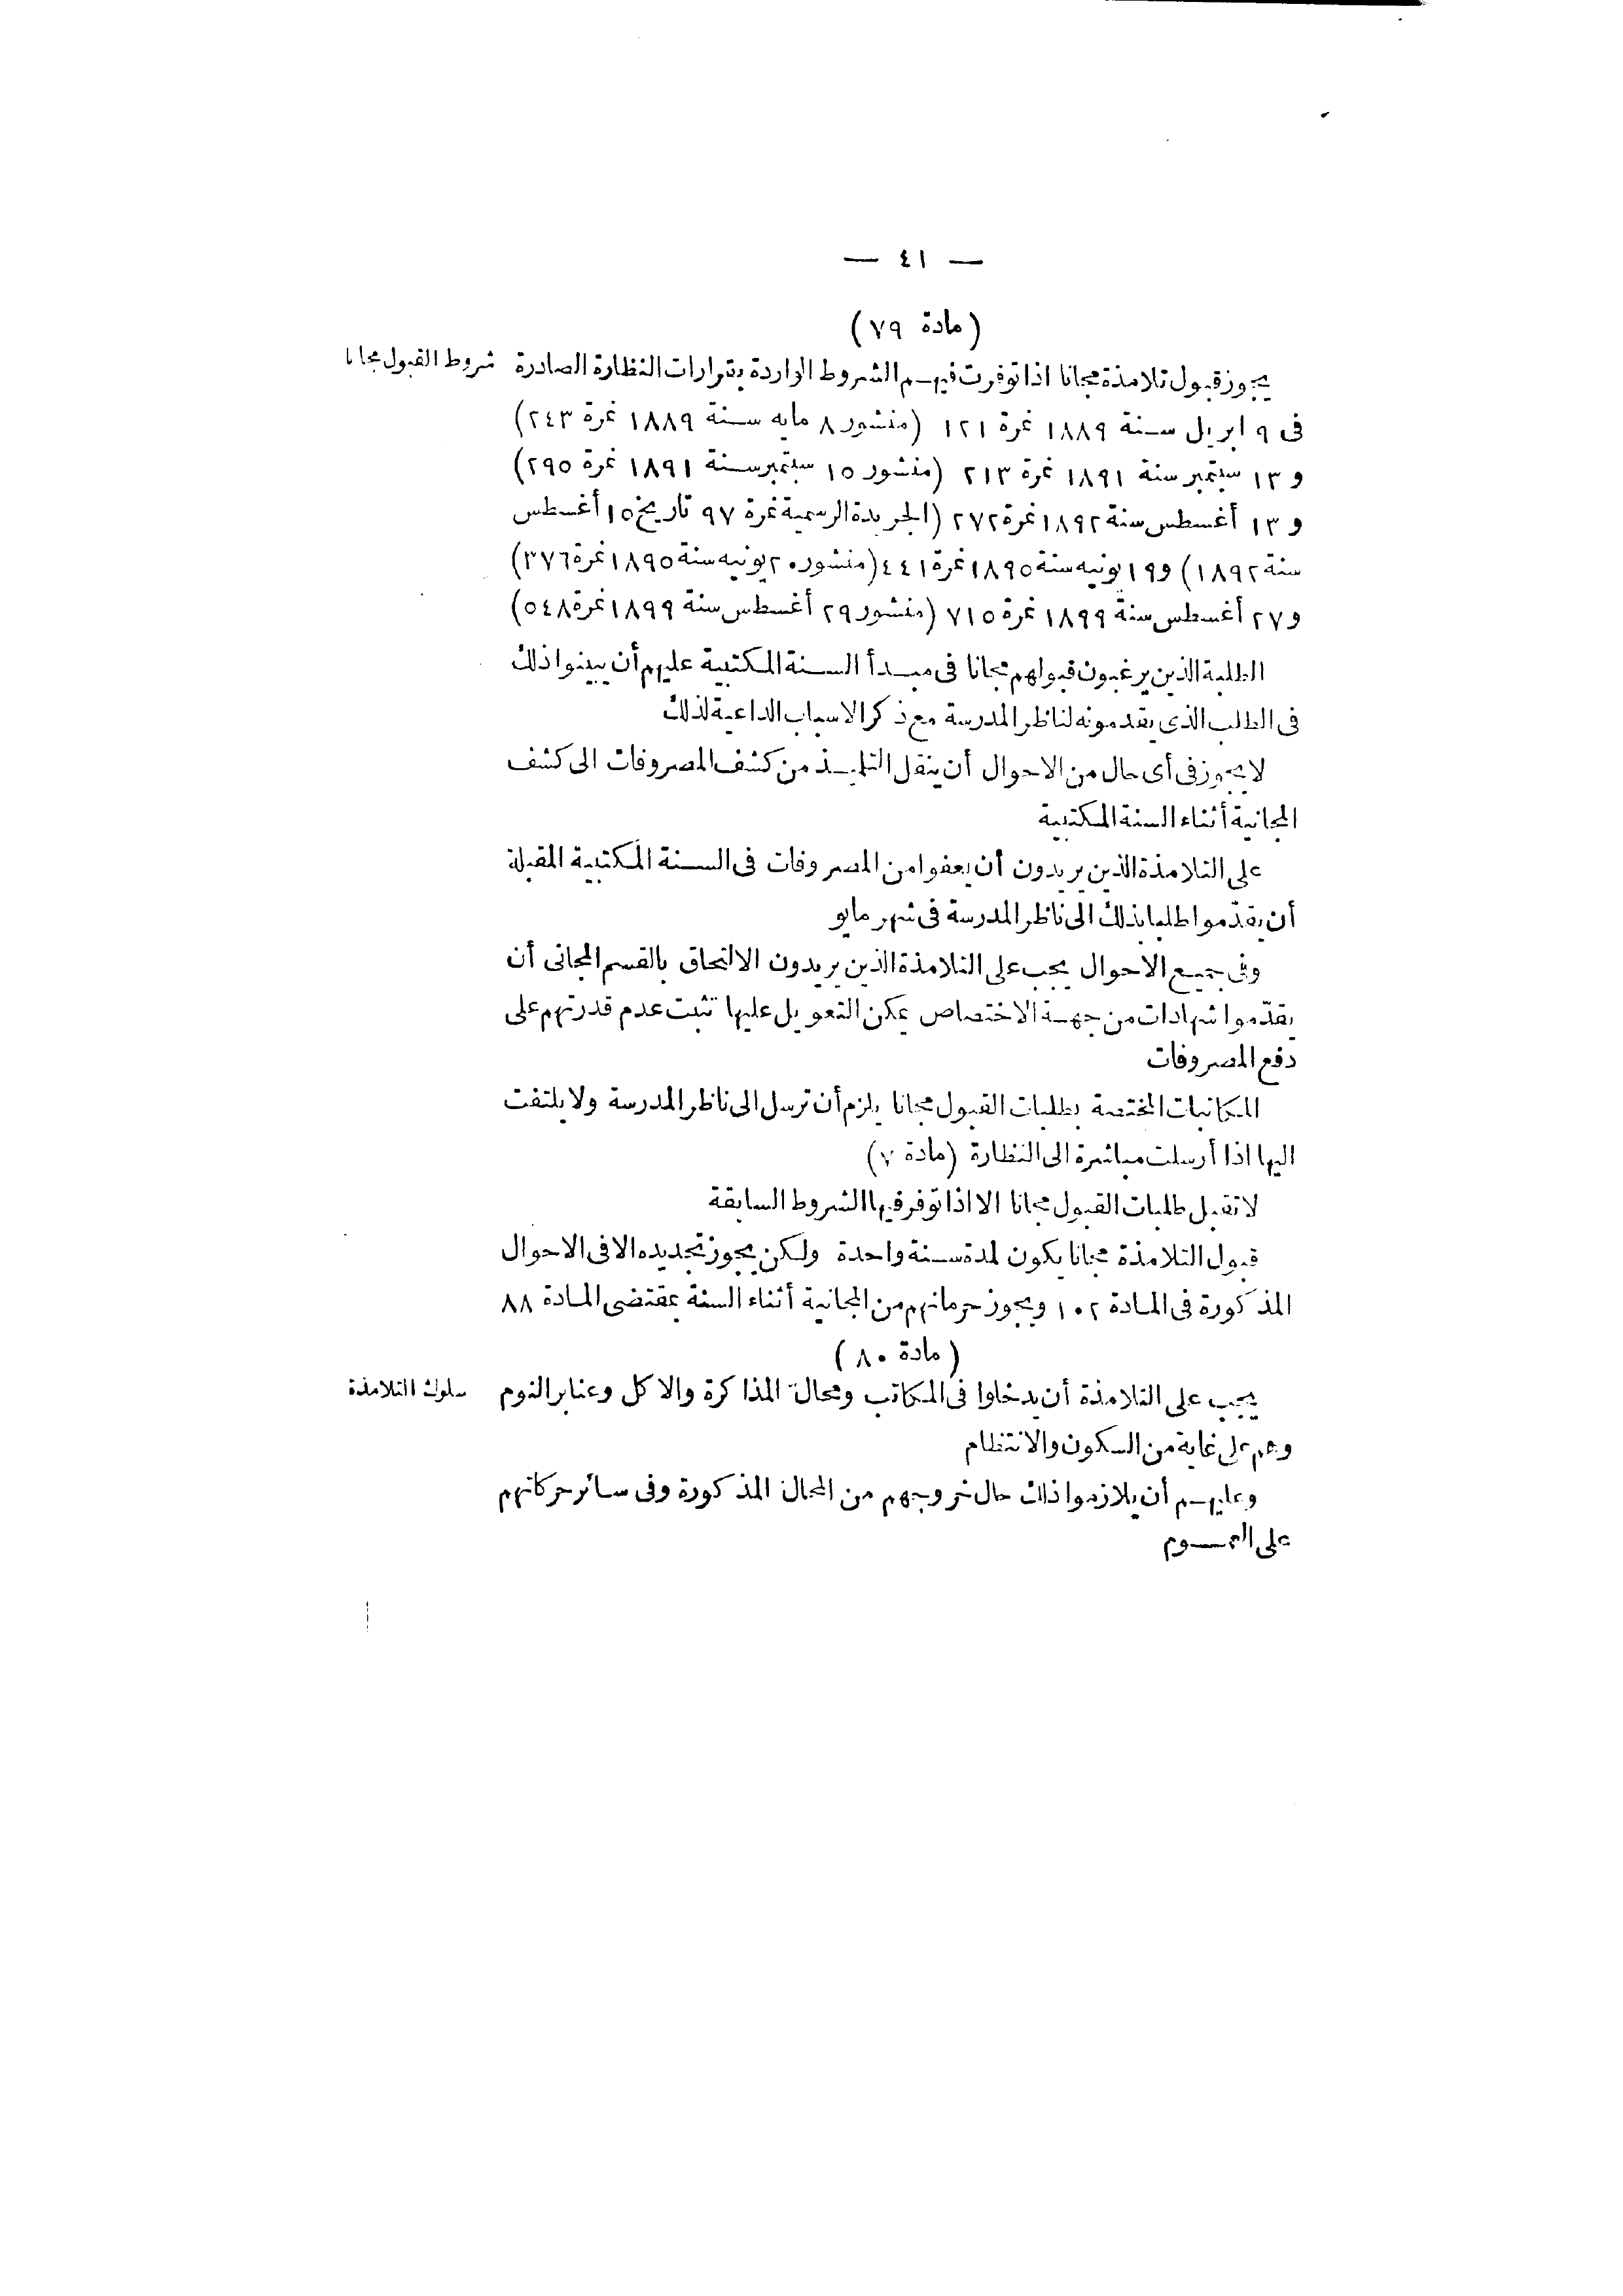 — ٤١ —
(مادة ٧٩)
يجوز قبول تلامذة مجانا اذا توفرت فيهم الشروط الواردة بقرارات النظارة الصادرة
شروط القبول مجانا
فى ٩ ابريل سنة ١٨٨٩ نمرة ١٢١ (منشور ٨ مايه سنة ١٨٨٩ نمرة ٢٤٣)
و ١٣ سبتمبر سنة ١٨٩١ نمرة ٢١٣ (منشور ١٥ سبتمبر سنة ١٨٩١ نمرة ٢٩٥)
و ١٣ أغسطس سنة ١٨٩٢ نمرة ٢٧٢ (الجريدة الرسمية نمرة ٩٧ تاريخ ١٥ أغسطس
سنة ١٨٩٢) و ١٩ يونيه سنة ١٨٩٥ نمرة ٤٤١ (منشور ٢٠ يونيه سنة ١٨٩٥ نمرة ٣٧٦)
و ٢٧ أغسطس سنة ١٨٩٩ نمرة ٧١٥ (منشور ٢٩ أغسطس سنة ١٨٩٩ نمرة ٥٤٨)
الطلبة الذين يرغبون قبولهم مجانا فى مبدأ السنة المكتبية عليهم أن يبينوا ذلك
فى الطلب الذى يقدمونه لناظر المدرسة مع ذكر الاسباب الداعية لذلك
لا يجوز فى أى حال من الاحوال أن ينقل التلميذ من كشف المصروفات الى كشف
المجانية أثناء السنة المكتبية
على التلامذة الذين يريدون أن يعفوا من المصروفات فى السنة المكتبية المقبلة
أن يقدّموا طلبا بذلك الى ناظر المدرسة فى شهر مايو
وفى جميع الاحوال يجب على التلامذة الذين يريدون الالتحاق بالقسم المجانى أن
يقدّموا شهادات من جهة الاختصاص يمكن التعويل عليها تثبت عدم قدرتهم على
دفع المصروفات
المكاتبات المختصة بطلبات القبول مجانا يلزم أن ترسل الى ناظر المدرسة ولا يلتفت
اليها اذا أرسلت مباشرة الى النظارة (مادة ٧)
لا تقبل طلبات القبول مجانا الا اذا توفر فيها الشروط السابقة
قبول التلامذة مجانا يكون لمدة سنة واحدة ولكن يجوز تجديده الا فى الاحوال
المذكورة فى المادة ١٠٢ ويجوز حرمانهم من المجانية أثناء السنة بمقتضى المادة ٨٨
(مادة ٨٠)
يجب على التلامذة أن يدخلوا فى المكاتب ومحالّ المذاكرة والاكل وعنابر النوم
سلوك التلامذة
وهم على غاية من السكون والانتظام
وعليهم أن يلازموا ذلك حال خروجهم من المحالّ المذكورة وفى سائر حركاتهم
على العموم